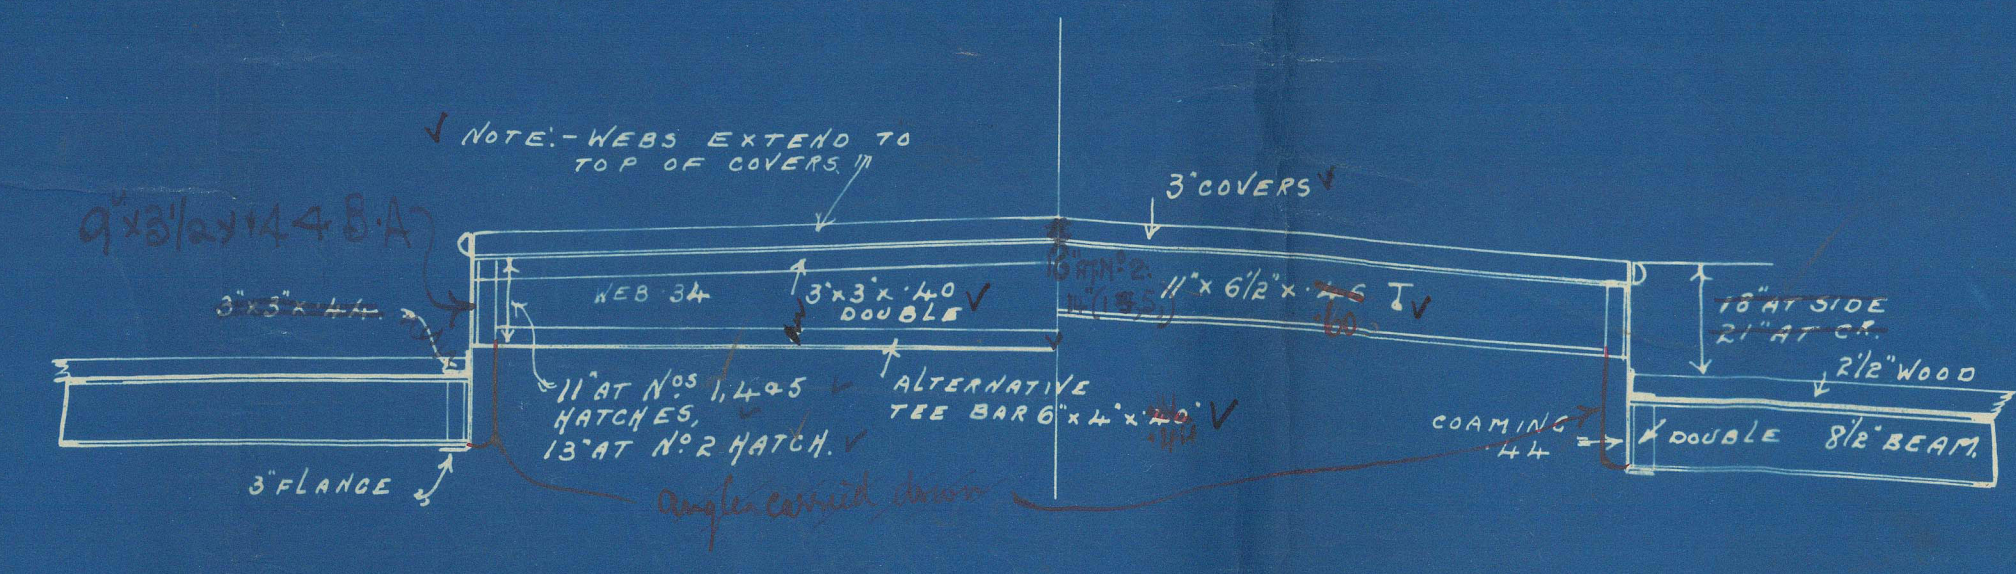 NOTE:- WEBS EXTEND TO
TOP OF COVERS.
3" COVERS
9" x 3 1/2 x .44 B.A
3" x 3" x .44
WEB .34
3" x 3" x .40
DOUBLE
AT No 2.
11" x 6 1/2" x .46 T
.60
16" AT SIDE
21" AT CR.
2 1/2" WOOD
11" AT Nos 1, 4 & 5
HATCHES,
13" AT No 2 HATCH.
ALTERNATIVE
TEE BAR 6" x 4" x .40
COAMING
.44
DOUBLE 8 1/2" BEAM.
3" FLANGE
angles carried down